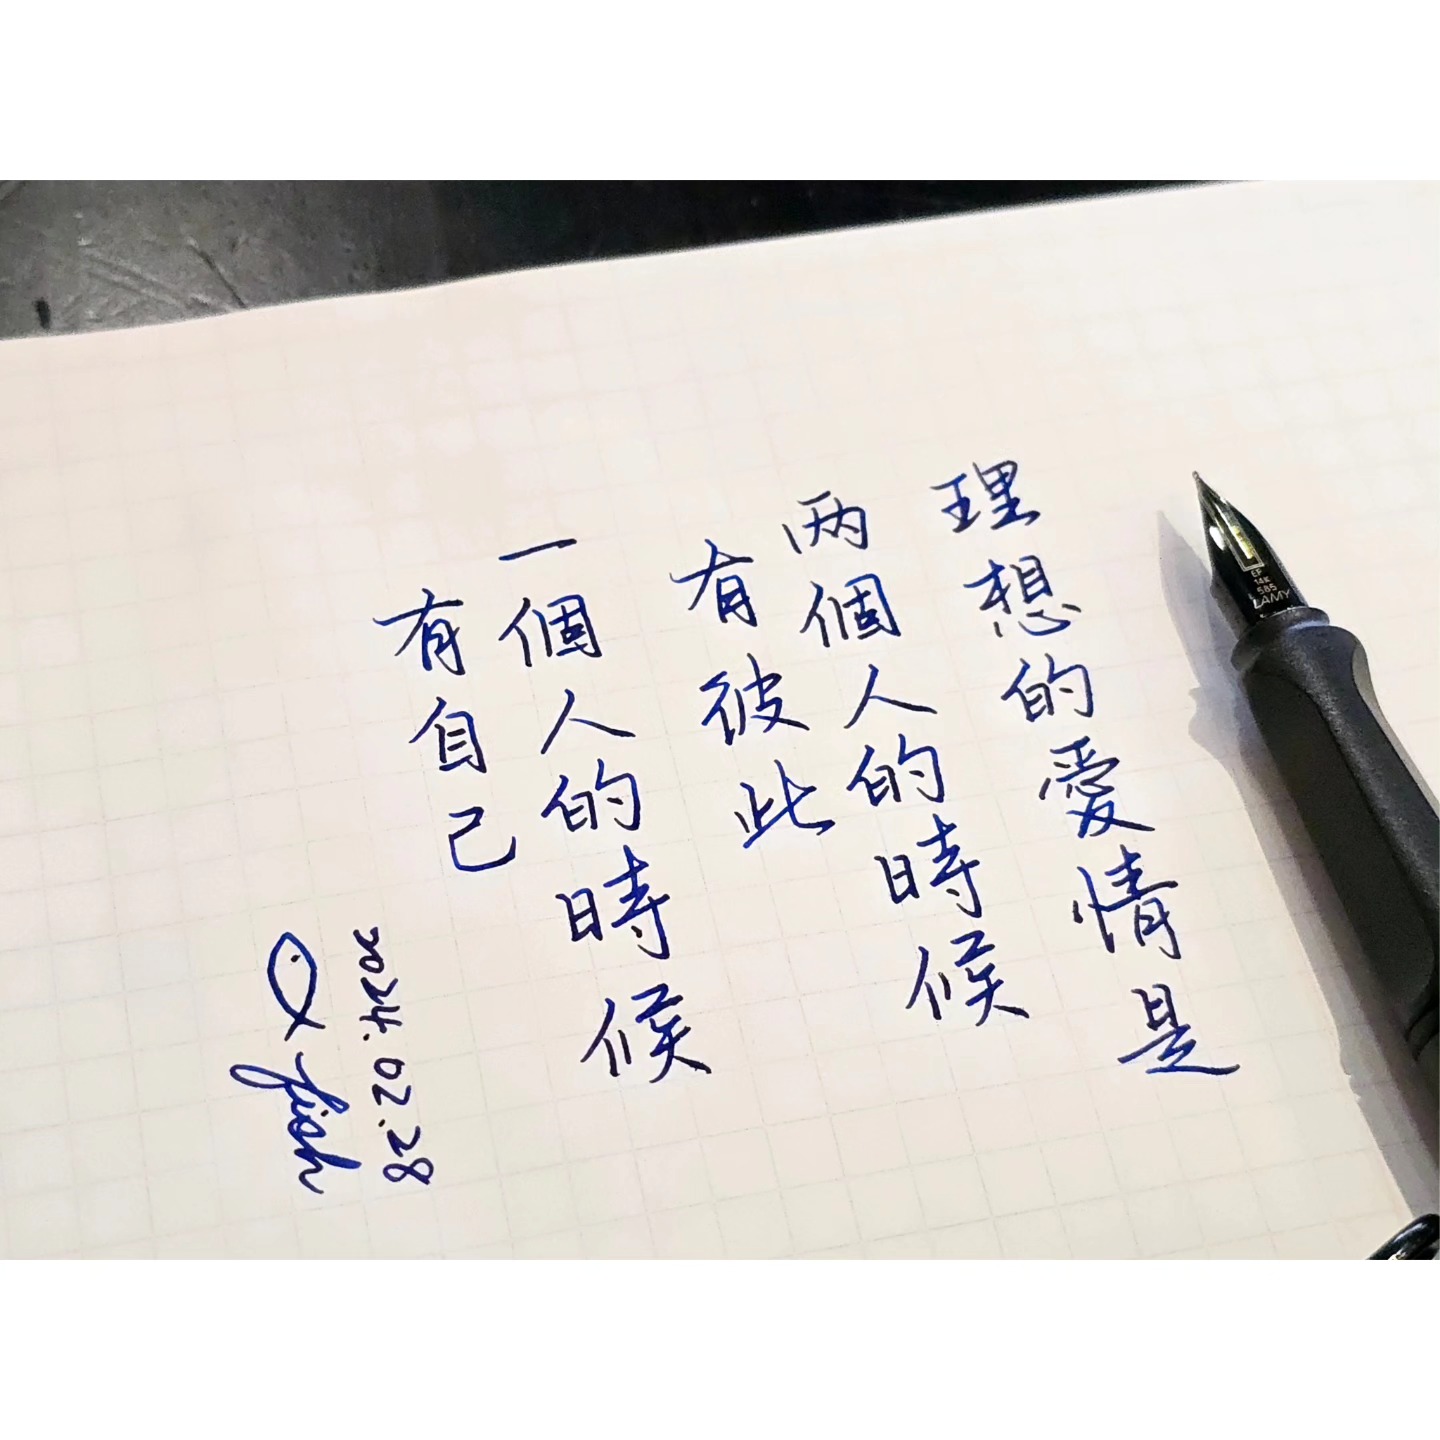 理想的愛情是
两個人的時候
有彼此
一個人的時候
有自己
2024.02.28
fish
EF
14K
585
LAMY